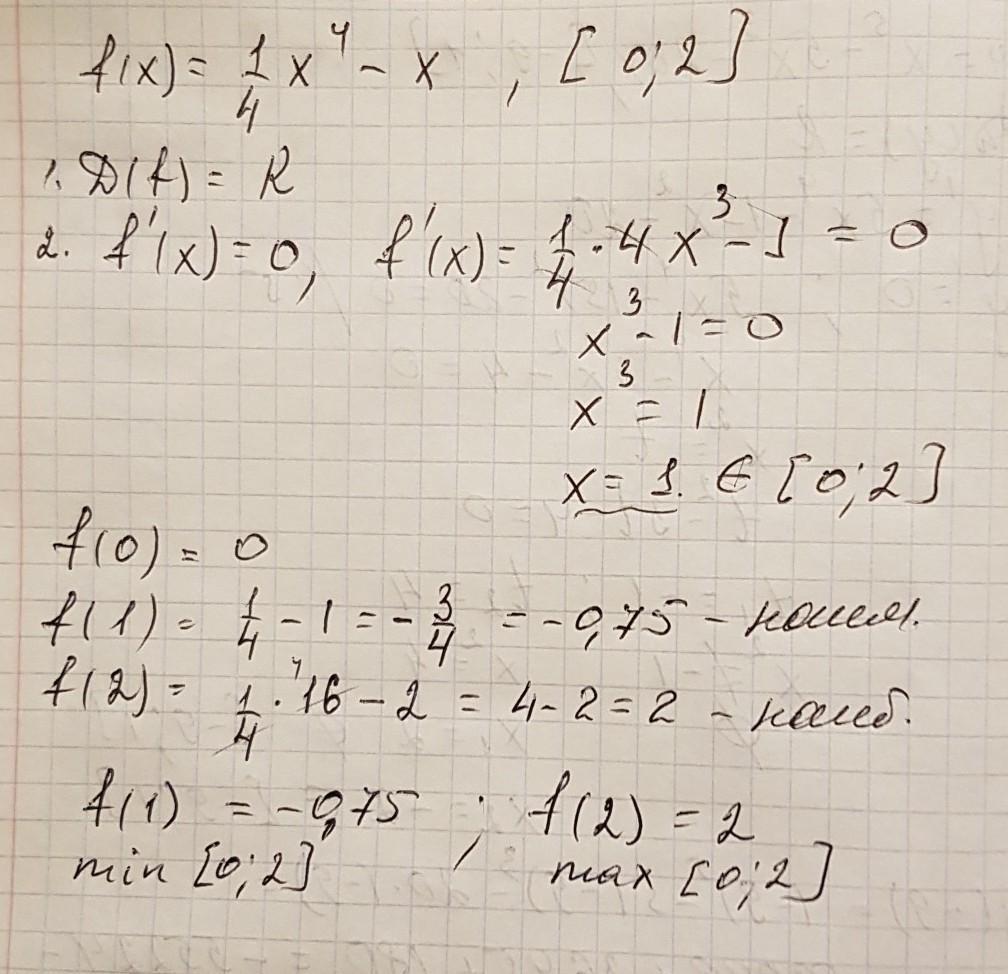 f(x) = 1/4 x⁴ - x , [0;2]
1. D(f) = R
2. f'(x) = 0, f'(x) = 1/4 · 4x³ - 1 = 0
x³ - 1 = 0
x³ = 1
x = 1. ∈ [0;2]
f(0) = 0
f(1) = 1/4 - 1 = - 3/4 = -0,75 - наим.
f(2) = 1/4 · 16 ⁴ - 2 = 4 - 2 = 2 - наиб.
f(1) = -0,75 ; f(2) = 2
min [0;2] max [0;2]